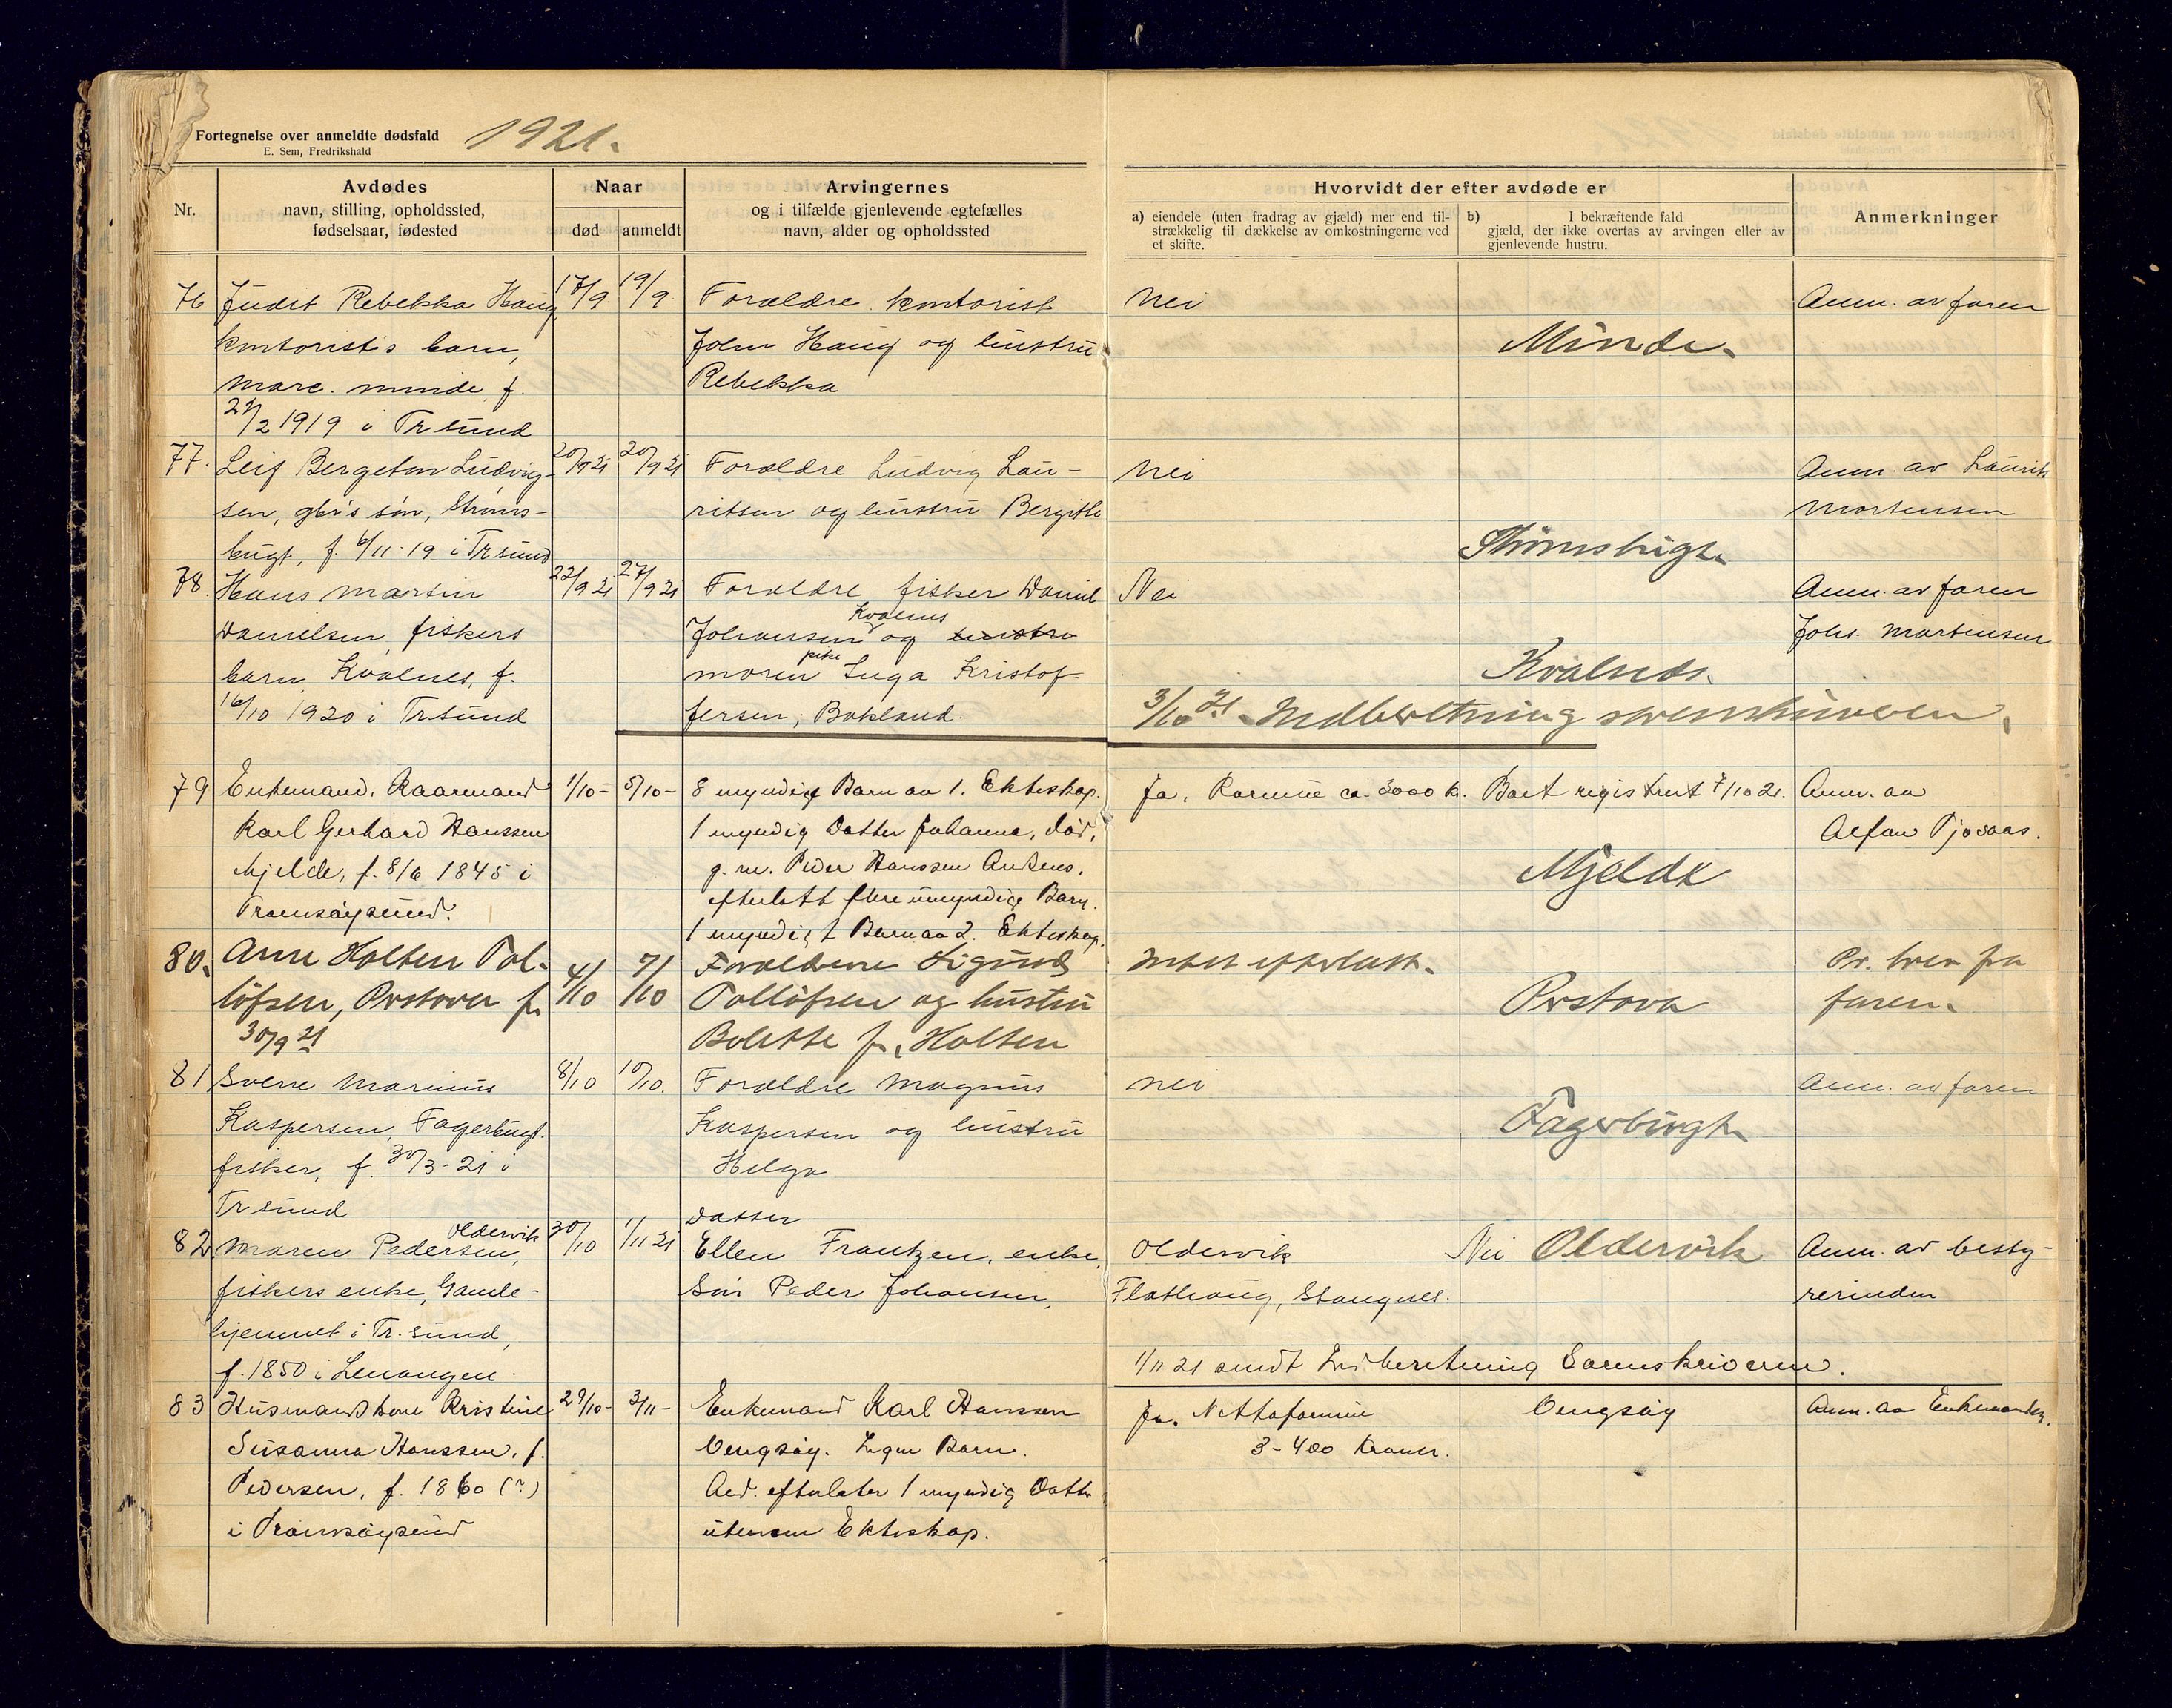 Fortegnelse over anmeldte dødsfald
E. Sem, Fredrikshald
1921.
Nr.
Avdødes
navn, stilling, opholdssted,
fødselsaar, fødested
Naar
død
anmeldt
Arvingernes
og i tilfælde gjenlevende egtefælles
navn, alder og opholdssted
Hvorvidt der efter avdøde er
a) eiendele (uten fradrag av gjæld) mer end til-
strækkelig til dækkelse av omkostningerne ved
et skifte.
b) I bekræftende fald
gjæld, der ikke overtas av arvingen eller av
gjenlevende hustru.
Anmerkninger
76 Judit Rebekka Haug,
kontorists barn,
Marc. minde, f.
2/2 1919 i Tr sund
17/9. 19/9
Forældre kontorist
John Haug og hustru
Rebekka
Nei
Minde.
Anm. av faren
77. Leif Bergeton Ludvig-
sen, gbr's søn, Strøms-
bugt, f. 6/11-19 i Tr sund
20/9 21 20/9 21
Forældre Ludvig Lau-
ritsen og hustru Bergitte
Nei
Strømsbugt.
Anm. av Laurits
Mortensen
78. Hans Martin
Danielsen, fiskers
barn, Kvalnes, f.
16/10 1920 i Tr.sund
22/9 21 27/9 21
Forældre fisker Daniel
Kvalnes
Johansen og hustru
pike
moren Inga Kristof-
fersen, Bakland.
Nei
Kvalnes.
Anm. av faren
Johs. Martinsen
3/10 21. Indberetning sorenskriveren.
79 Enkemand, Kaarmand
Karl Gerhard Hanssen
Mjelde, f. 8/6 1845 i
Tromsøysund.
1/10- 5/10-
8 myndige Barn av 1. Ekteskap.
1 myndig Datter Johanna, død,
g. m. Peder Hanssen Andsnes,
efterlatt flere umyndige Barn.
1 myndigt Barn av 2. Ekteskap.
Ja. Formue ca. 3000 k.
Boet registrert 7/10 21.
Mjelde
Anm. av
Alfon Tjosaas.
80. Arne Holten Tol-
løfsen, Prstova f.
30/9 21
4/10 7/10
Forældrene Sigurd
Tolløfsen og hustru
Bolette f. Holten
Intet efterlatt.
Prstova
Pr. brev fra
faren.
81 Sverre Marinus
Kaspersen, Fagerbugt.
fisker, f. 30/3-21 i
Tr sund
8/10 10/10.
Forældre Magnus
Kaspersen og hustru
Helga
Nei
Fagerbugt.
Anm. av faren
Oldervik
82 Maren Pedersen,
fiskers enke, Gamle-
hjemmet i Tr. sund,
f. 1850 i Lenangen.
30/10 1/11 21
Datter
Ellen Frantzen, enke,
Søn Peder Johansen,
Oldervik
Flathaug, Stangnes.
Nei Oldervik
Anm. av besty-
rerinden
1/11 21 sendt Indberetning Sorenskriveren.
83 Husmandskone Kristine
Susanna Hanssen, f.
Pedersen, f. 1860 (?)
i Tromsøysund
29/10- 3/11-
Enkemand Karl Hanssen
Vengsøy. Ingen Barn.
Avd. efterlater 1 myndig Datter
utenom Ekteskap.
Ja. Nettoformue
3-400 Kroner.
Vengsøy
Anm. av Enkemanden.